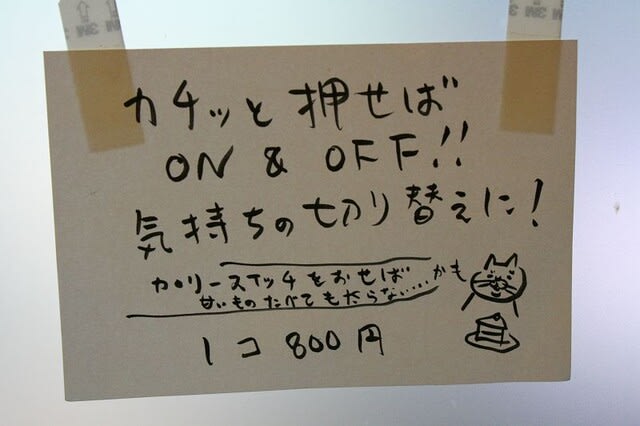 カチッと押せば
ON & OFF!!
気持ちの切り替えに!
カロリースイッチをおせば
甘いものたべてもたらない....かも
1コ 800円
3M
3M